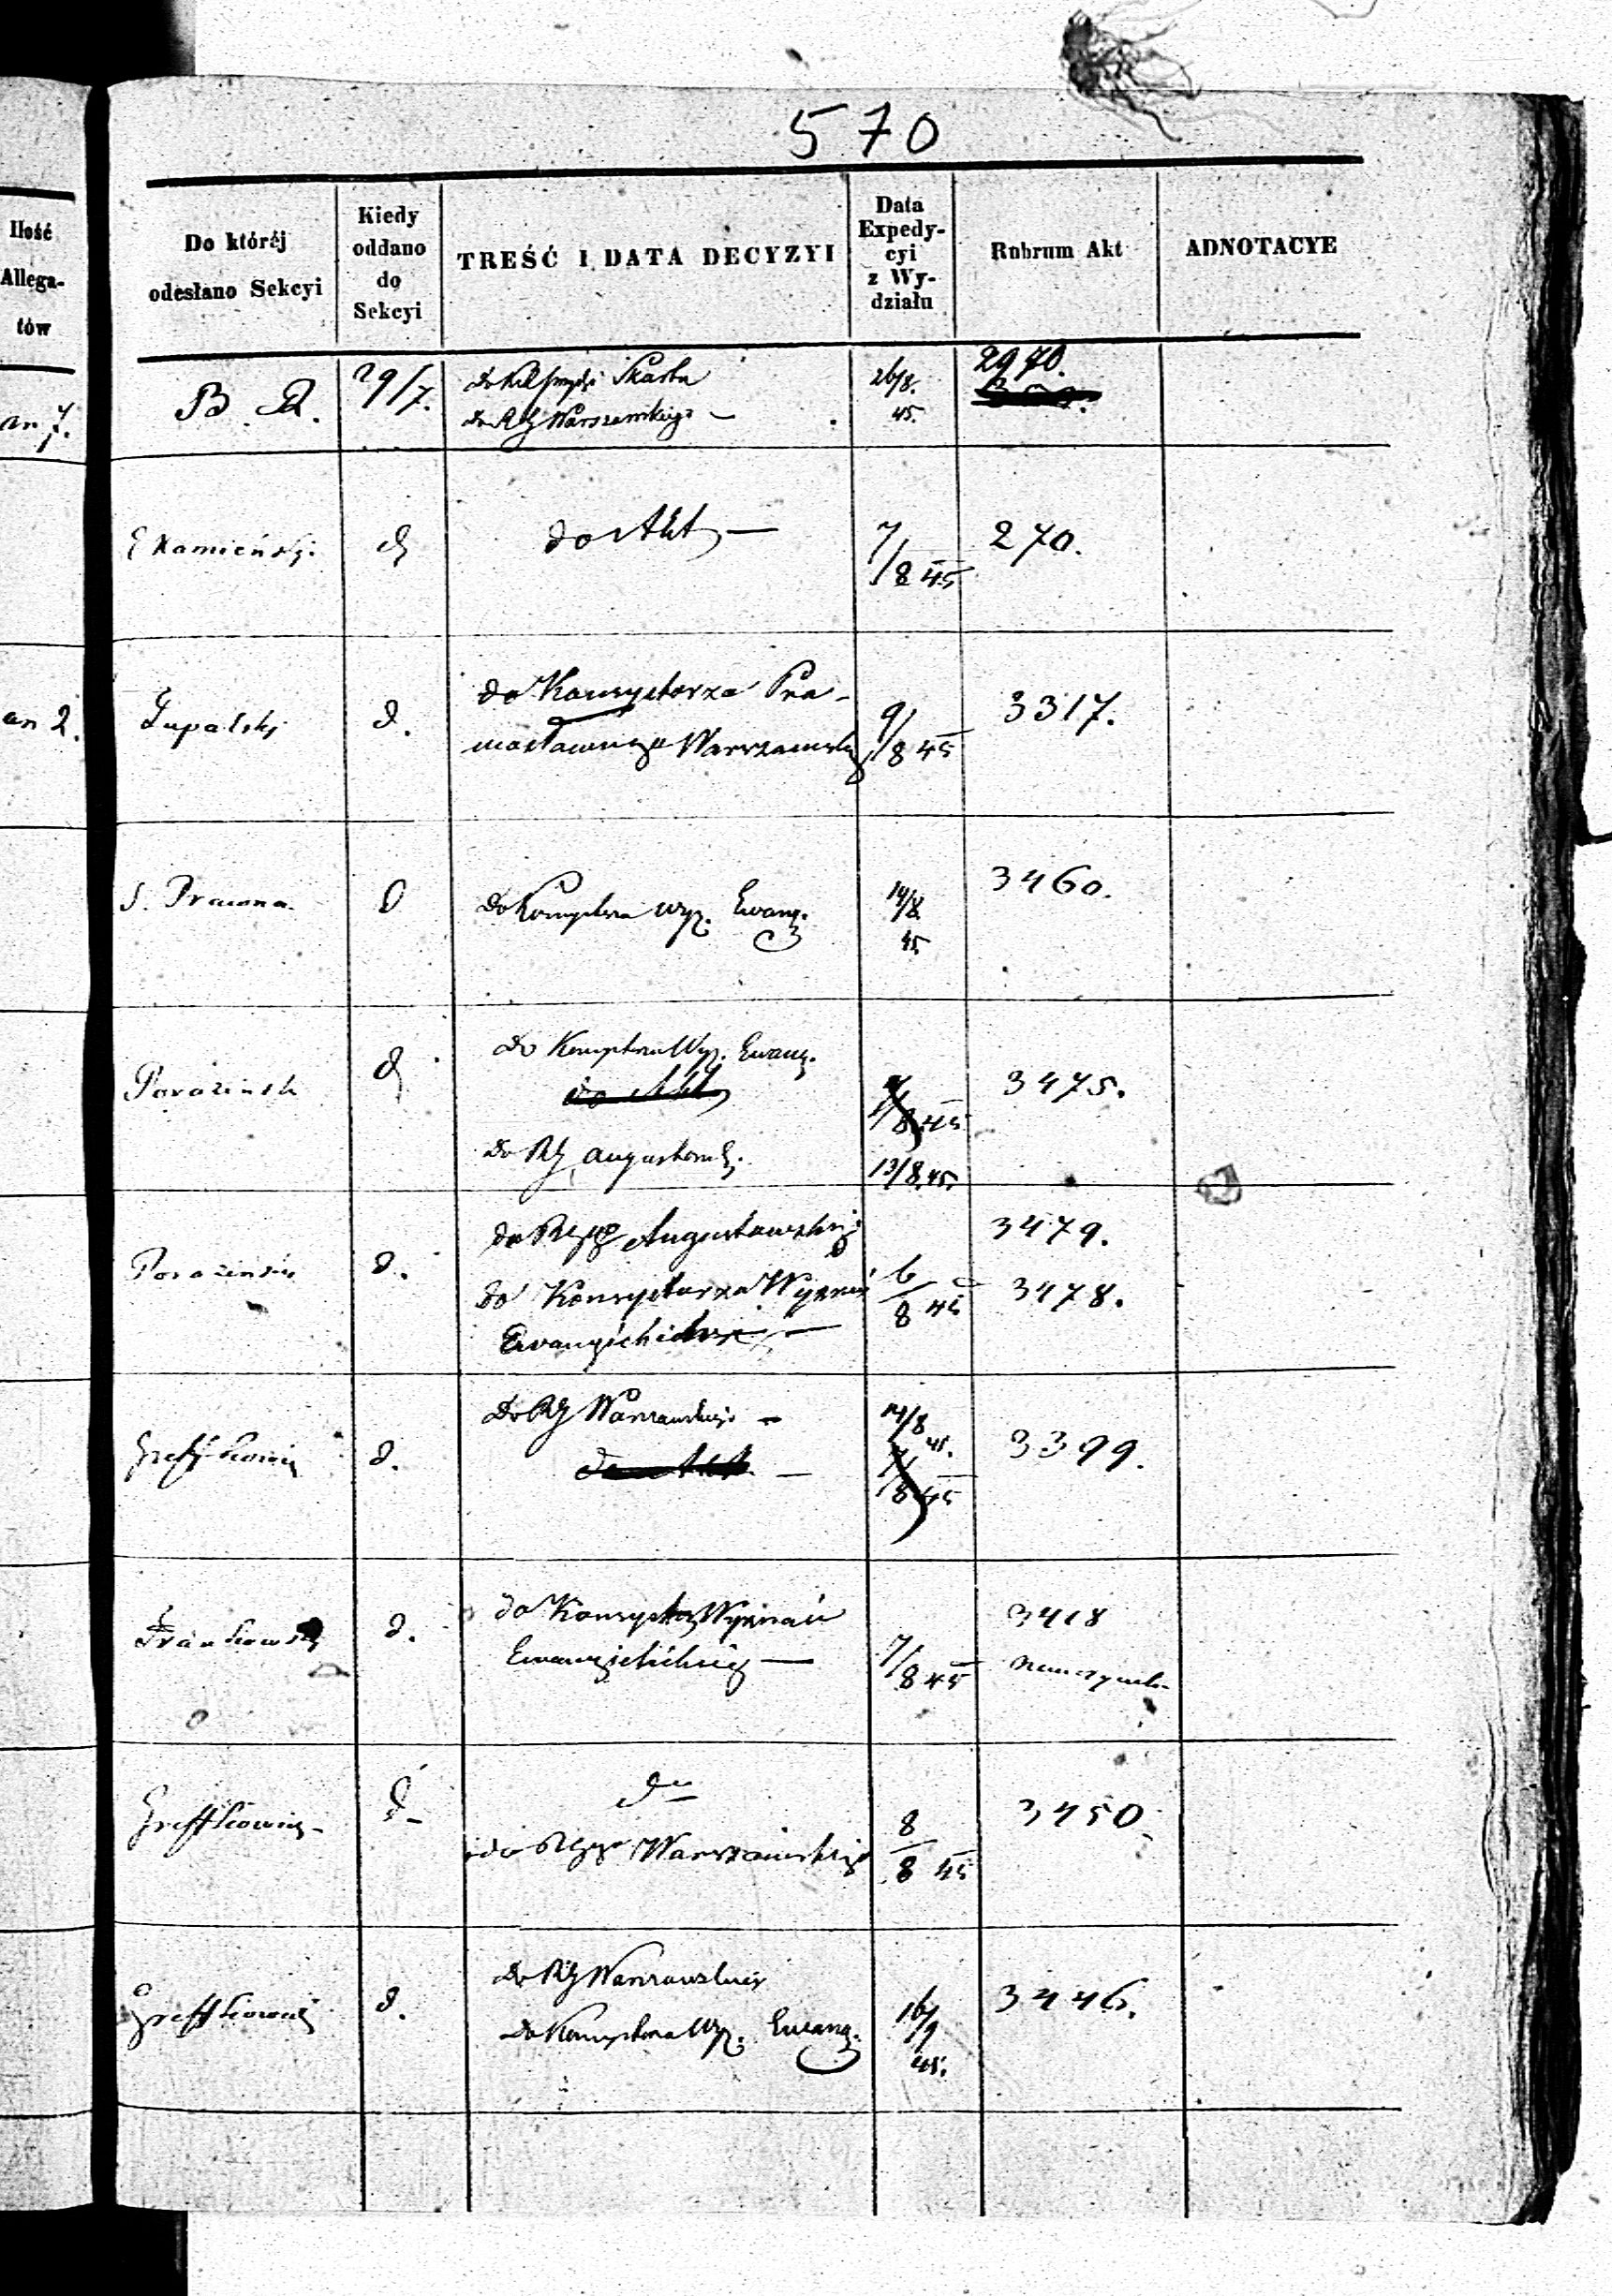 570
Ilość
Allega-
tów
Do któréj
odesłano Sekcyi
Kiedy
oddano
do
Sekcyi
TREŚĆ I DATA DECYZYI
Data
Expedy-
cyi
z Wy-
działu
Rubrum Akt
ADNOTACYE
an 7.
29/7.
Skarbu
do RG Warszawskiego —
26/8.
45.
2970.
Kamieński.
d
do Akt —
7/8 45
270.
an 2.
Łupalski
d.
do Konsystorza Pra-
wosławnego Warszawsk
9/8 45
3317.
S. Prawna.
d
do Konsystorza Wyz. Ewang.
14/8
45
3460.
d
do Konsystorza Wyz. Ewang.
do Akt
do RG Augustowsk.
8 45
13/8.45.
3475.
d.
do RG Augustowskieg
do Konsystorza Wyznań
Ewangielickich —
6/8 45
3479.
3478.
d.
do RG Warszawskiego —
do Akt —
14/8
45.
7/8 45
3399.
Frankowski
d.
do Konsystorz Wyznań
Ewangielickieg —
7/8 45
3418
d
do RGo Warszawskieg
8/8 45
3450
d.
do RG Warszawskieg
do Konsystorza Wyz. Ewang.
16/9
45.
3446.